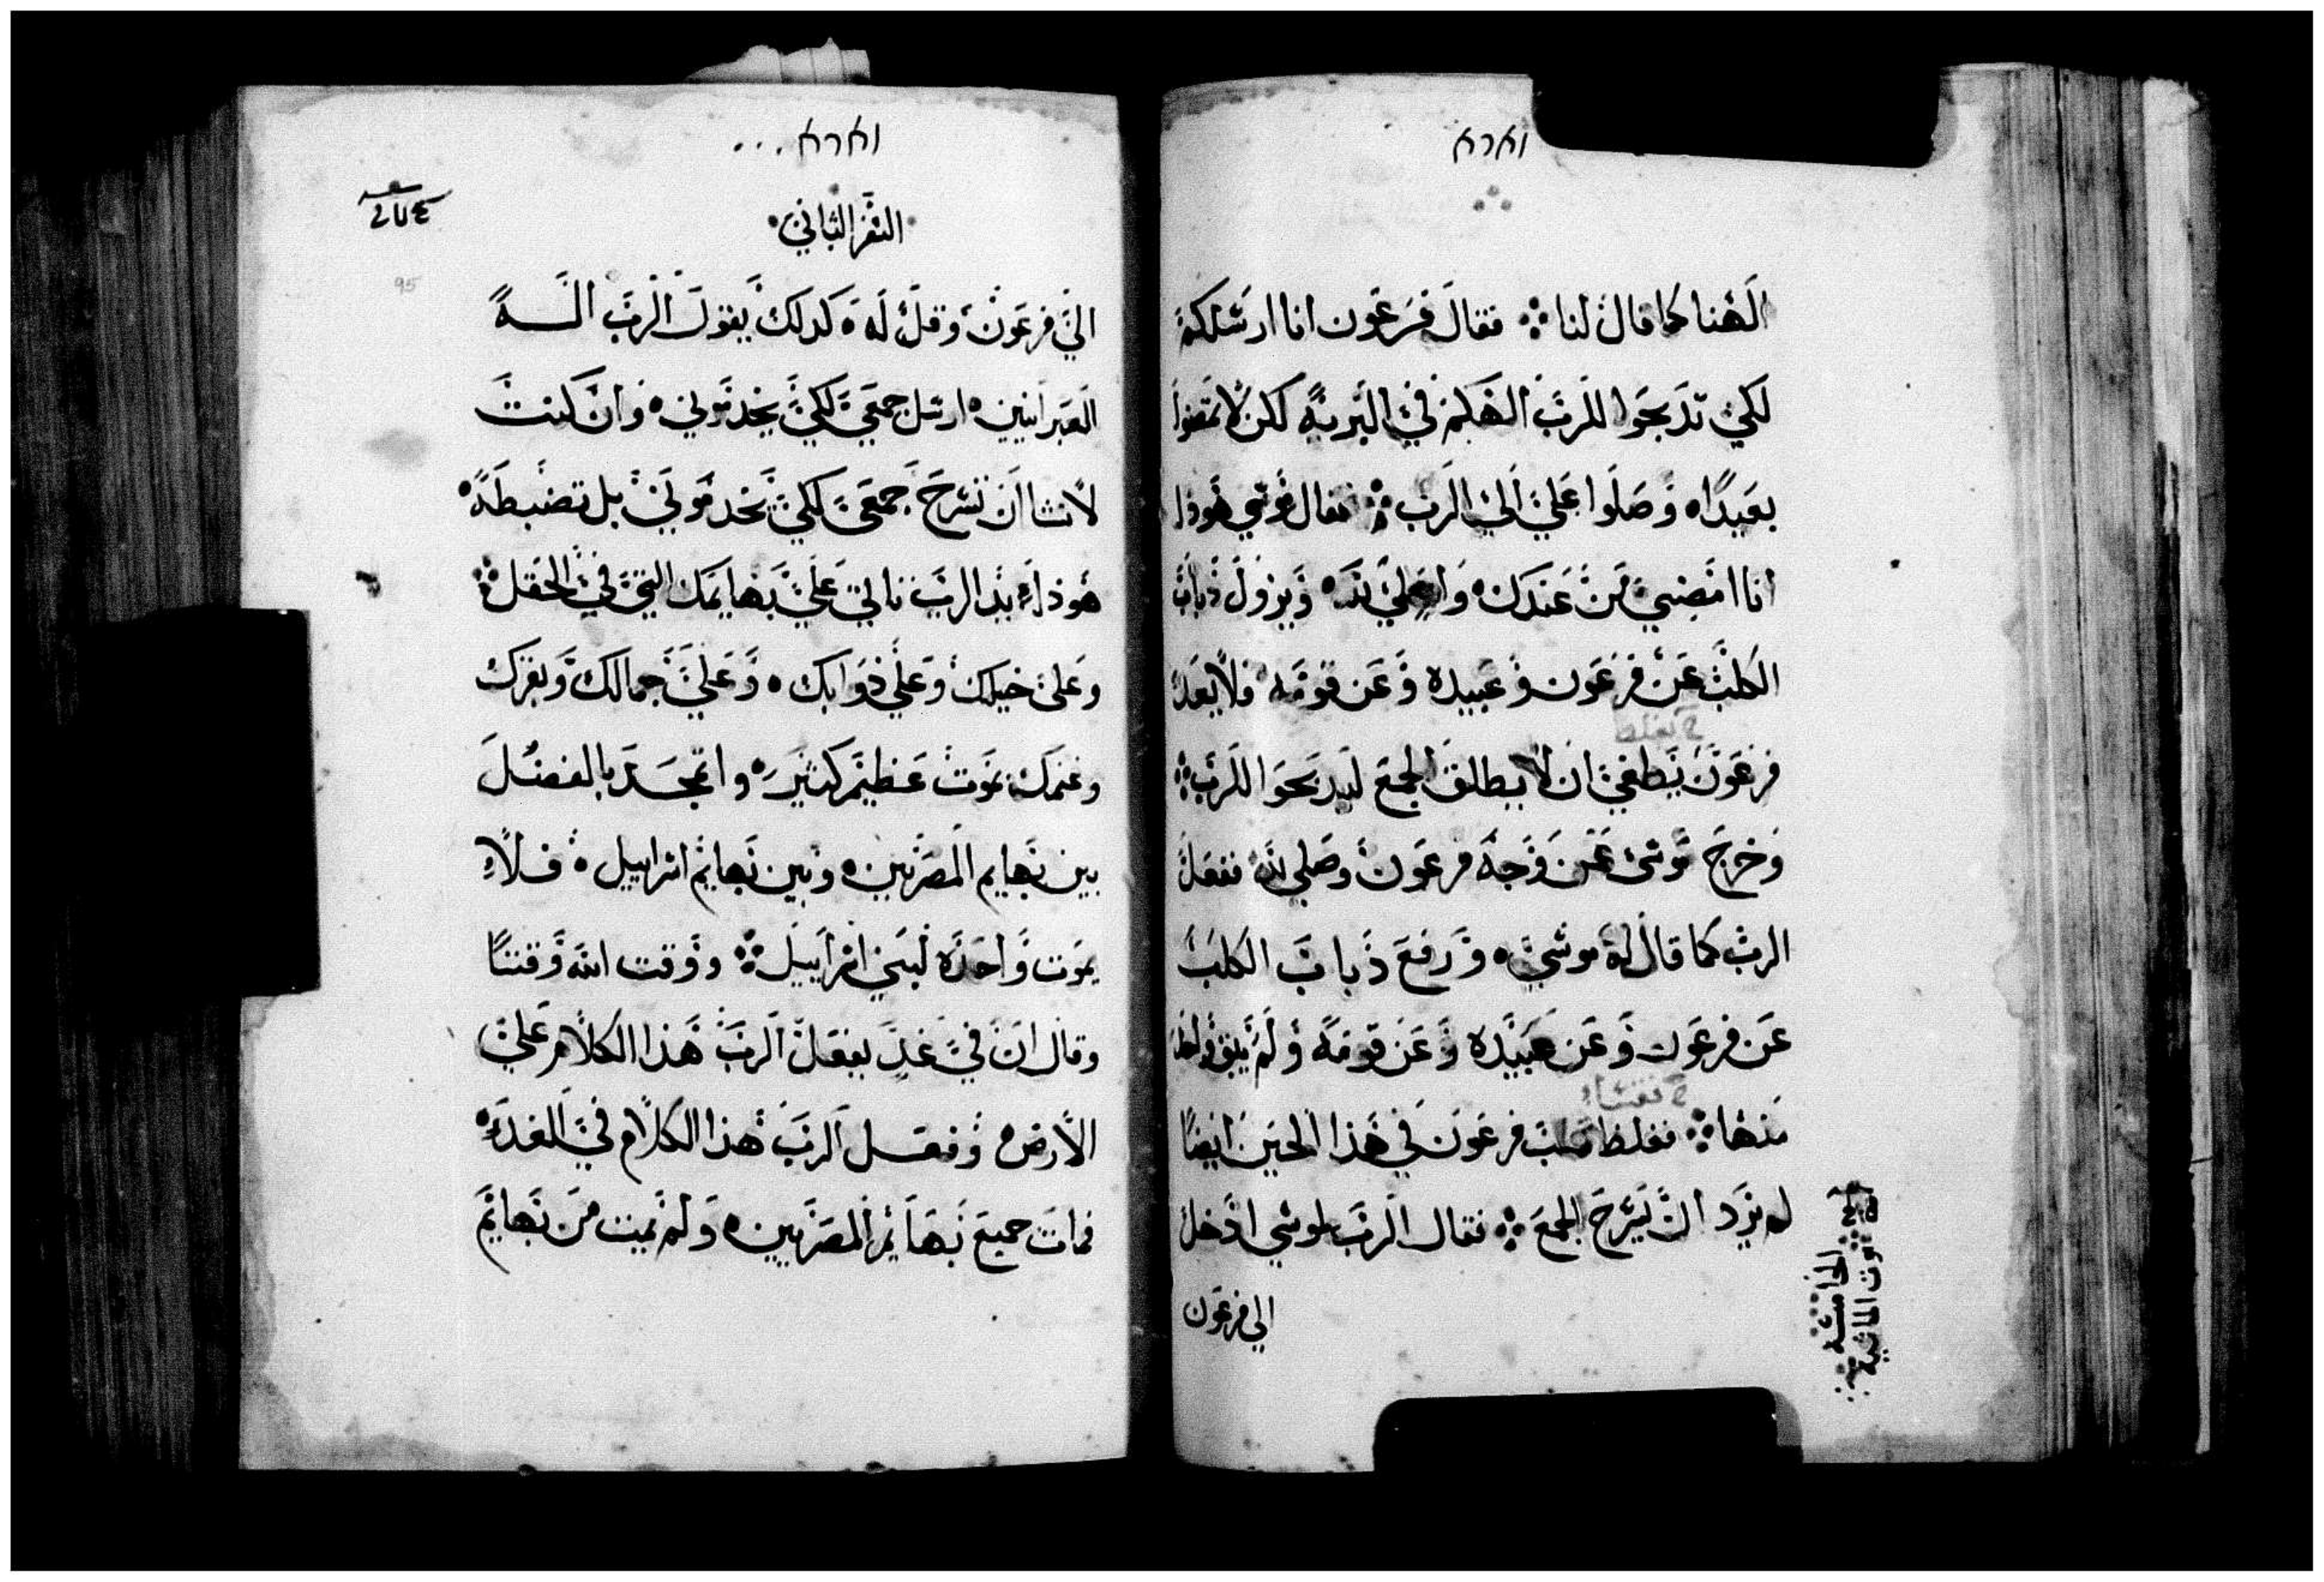 וארא
الهنا كما قال لنا ۞ فقال فرعون انا ارسلكم
لكي تدبحوا للرب الهكم في البريه لكن لا تمضوا
بعيدًا ه وصلوا علي الي الرب ۞ فقال موسي هوذا
انا امضي من عندك ه واصلي لله ه ويزول ذباب
الكلب عن فرعون وعبيده وعن قومه فلا يعد
فرعون يطغي ان لا يطلق الجمع ليدبحوا للرب ۞
وخرج موسي عن وجه فرعون وصلي لله ففعل
الرب كما قال له موسي ه ورفع ذباب الكلب
عن فرعون وعن عبيده وعن قومه ولم يبق واحده
منها ۞ فغلظ قلب فرعون في هذا الحين ايضًا
لم يرد ان يسرح الجمع ۞ فقال الرب لموسي ادخل
الي فرعون
الخامسه
موت الماشية
וארא...
السفر الثاني
95
الي فرعون وقل له ه كدلك يقول الرب اله
العبرانيين ه ارسل جمعي لكي يخدموني ه وان كنت
لا تشا ان تسرح جمعي لكي يخدموني بل تضبطه ه
هوذا يد الرب تاتي علي بهايمك التي في الحقل ۞
وعلي خيلك وعلي دوابك ه وعلي جمالك وبقرك
وغنمك موت عظيم كثير ه واتمجد بالفضل
بين بهايم المصريين ه وبين بهايم اسراييل ه فلا
يموت واحده لبني اسراييل ۞ ووقت الله وقتًا
وقال ان في غد يفعل الرب هذا الكلام علي
الارض ه وفعل الرب هذا الكلام في الغد ه
فمات جميع بهايم المصريين ه ولم يميت من بهايم